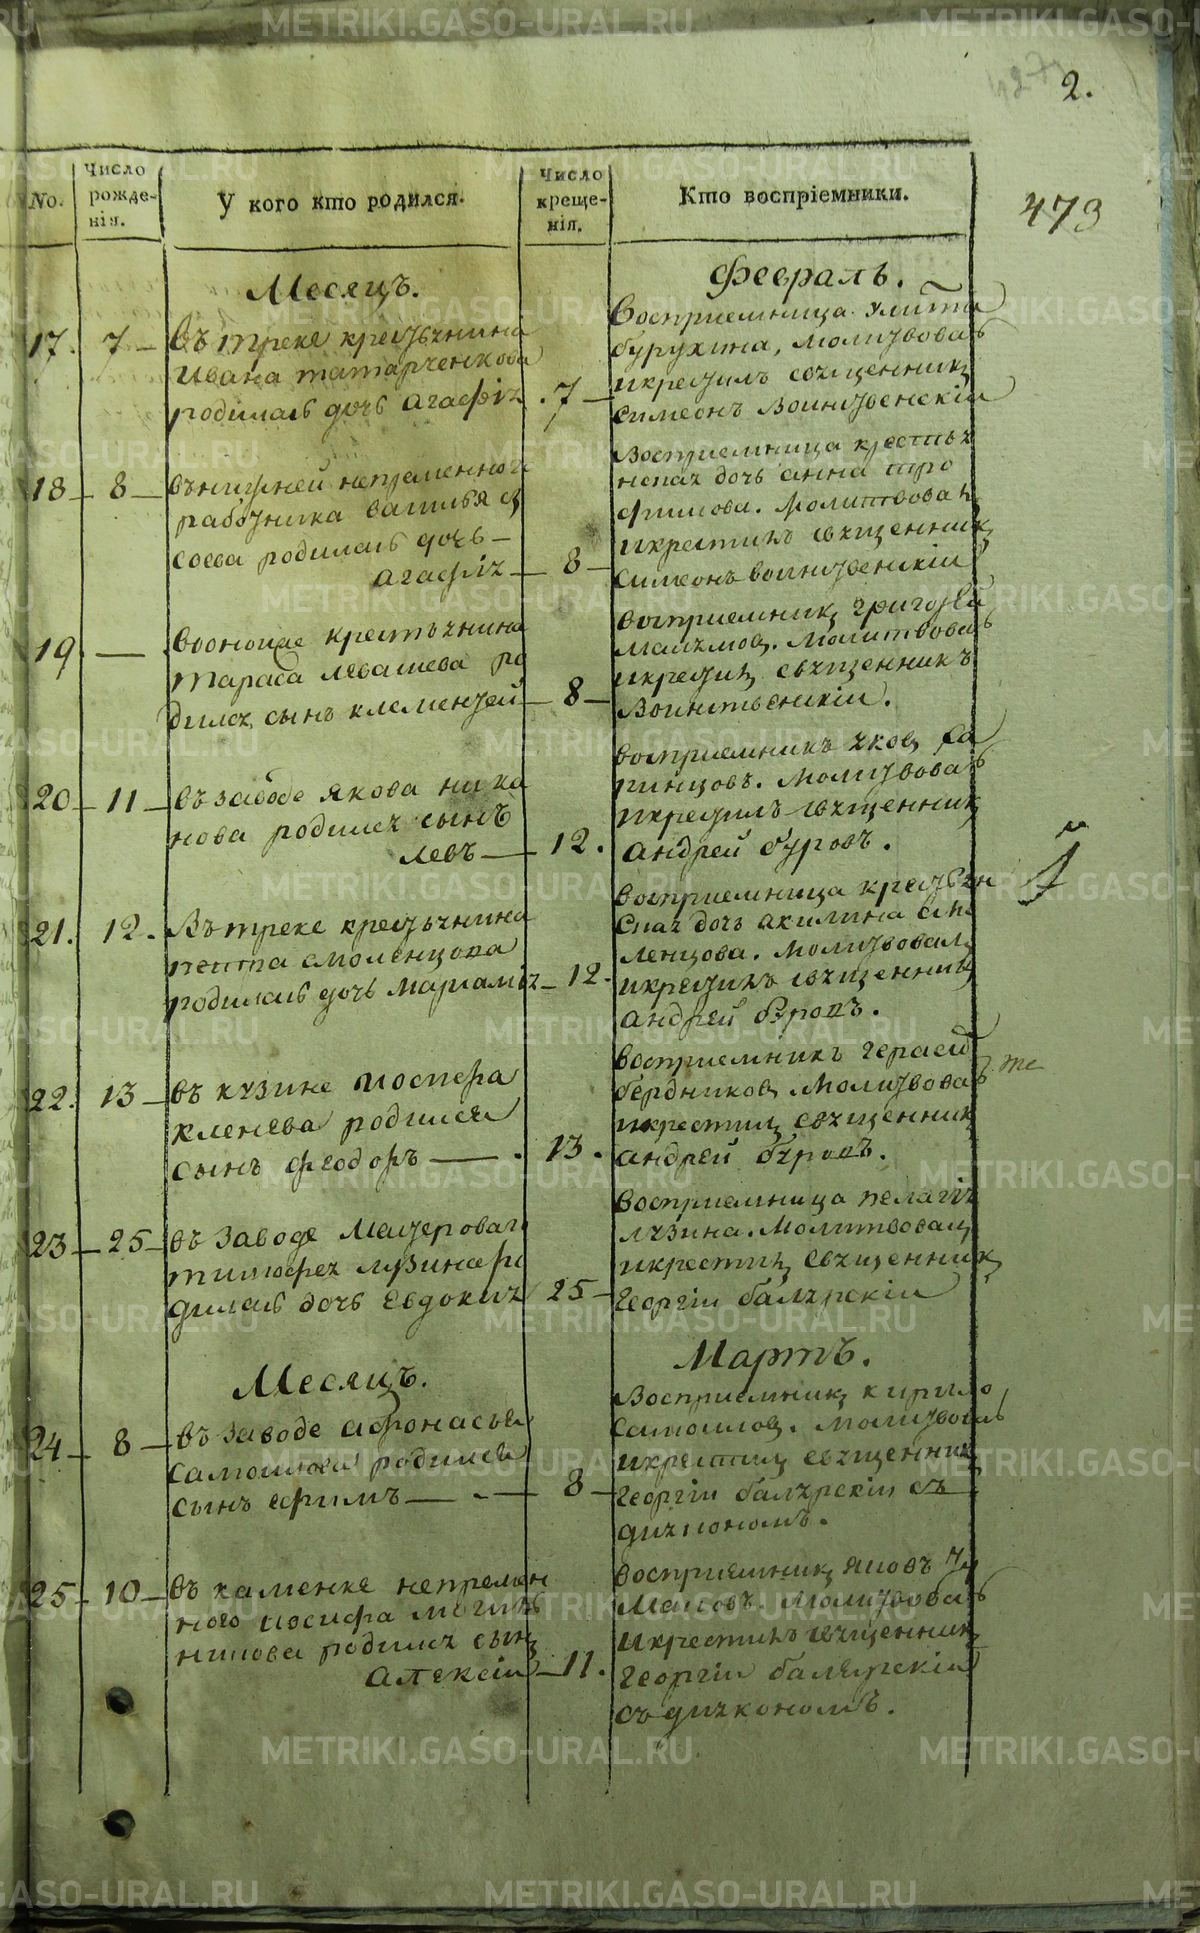 2.
473
No.
Число рожде-нія.
У кого кто родился.
Число креще-нія.
Кто воспріемники.
Месяцъ.
Февраль.
17. 7
въ треке крестьянина
Ивана татарченкова
родилась дочь агафія
7
Восприемница улита
бурухина, молитвовалъ
икрестилъ священникъ
симеонъ Воинственскіи
18 8
внижней непременнаго
работника василья
соева родилась дочь
агафія
8
Восприемница крестья
нская дочь анна тро
фимова. Молитвовалъ
икрестилъ священникъ
Симеонъ воинственскіи
19
крестьянина
тараса левашева ро
дился сынъ клементей
8
восприемникъ григорей
. Молитвовалъ
икрестилъ священникъ
Воинственскіи.
20 11
въ заводе якова ника
нова родился сынъ
левъ
12.
восприемникъ яковъ са
ринцовъ. Молитвовалъ
икрестилъ священникъ
андрей буровъ.
21. 12.
Въ треке крестьянина
смоленцова
родилась дочь мариамія
12.
восприемница крестьян
ская дочь акилина смо
ленцова. Молитвовалъ
икрестилъ священникъ
андрей буровъ.
22. 13
въ кузине иосифа
кленева родился
сынъ феодоръ
13.
восприемникъ герасимъ
бердниковъ Молитвовалъ
икрестилъ священникъ
андрей буровъ.
23 25
въ заводе Мастероваго
тимофея лузина ро
дилась дочь Евдокия
25
восприемница пелагія
лузина. Молитвовалъ
икрестилъ священникъ
георгіи балярскіи
Месяцъ.
Мартъ.
24 8
въ заводе афонасья
самоилова родился
сынъ ефимъ
8
Восприемникъ кирило
самоиловъ. молитвовалъ
икрестилъ священникъ
георгіи балярскіи съ
диякономъ.
25 10
въ каменке непремен
ного иосифа
родился сынъ
Алексіи
11.
восприемникъ
Молитвовалъ
икрестилъ священникъ
георгіи балярскіи
съ диякономъ.
METRIKI.GASO-URAL.RU